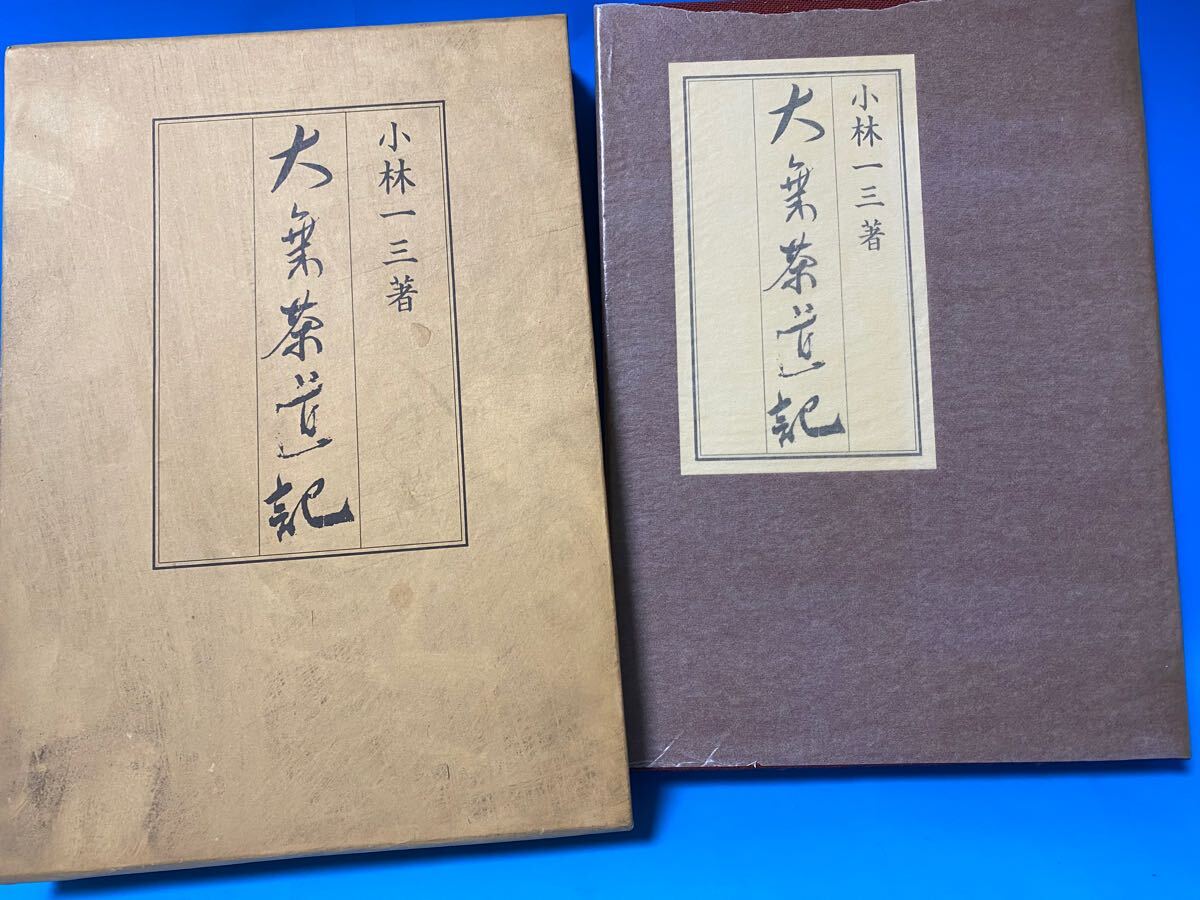 小林一三著
大乗茶道記
小林一三著
大乗茶道記